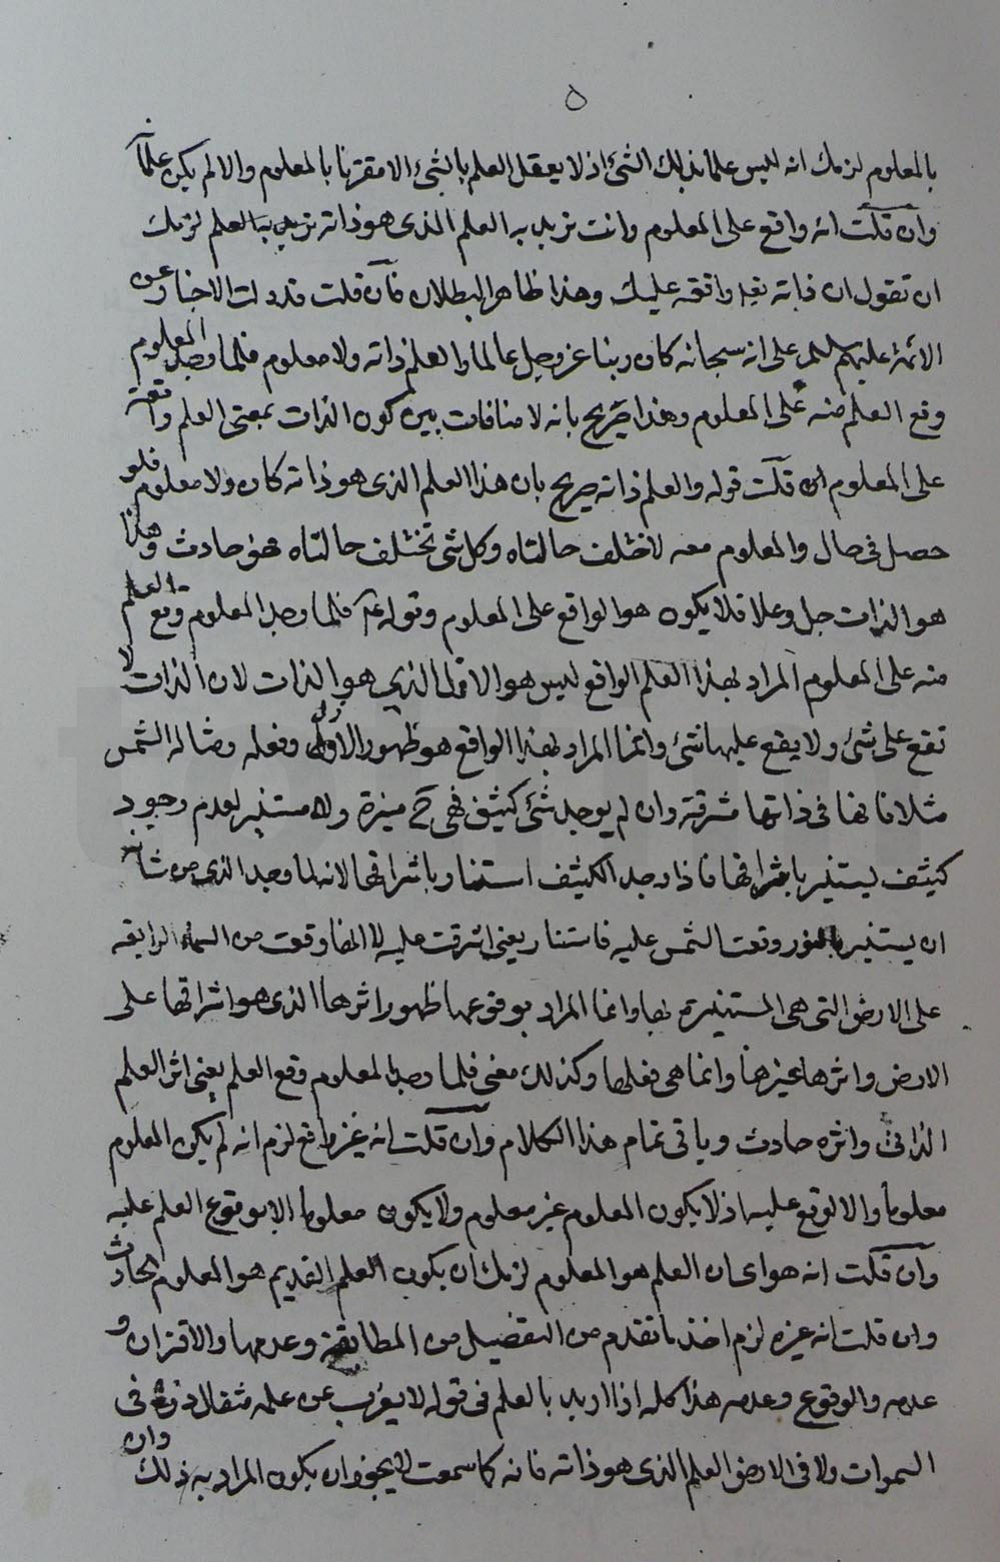 ٥
بالمعلوم لزمك انه ليس علما بذلك الشئ اذ لا يعقل العلم بالشئ الا مقترنا بالمعلوم والا لم يكن علماً
وان قلت انه واقع على المعلوم وانت تريد به العلم الذى هو ذاته تريد بالعلم لزمك
ان تقول ان ذاته واقعة عليك وهذا ظاهر البطلان فان قلت قد دلت الاخبار عن
الائمة عليهم السلام على انه سبحانه كان ربنا عز وجل عالما والعلم ذاته ولا معلوم فلما وجد المعلوم
وقع العلم منه على المعلوم وهذا صريح بانه لا منافات بين كون الذات بمعنى العلم واقعة
على المعلوم ان قلت قوله والعلم ذاته صريح بان هذا العلم الذى هو ذاته كان ولا معلوم فلو
حصل فى حال والمعلوم معه لاختلف حالتاه وكل شئ تختلف حالتاه فهو حادث وهذا
هو الذات جل وعلا فلا يكون هو الواقع على المعلوم وقوله ع فلما وجد المعلوم وقع العلم
منه على المعلوم المراد بهذا العلم الواقع ليس هو الاول الذى هو الذات لان الذات لا
تقع على شئ ولا يقع عليها شئ وانما المراد بهذا الواقع هو ظهور الاول وفعله ومثاله الشمس
مثلا فانها فى ذاتها مشرقة وان لم يوجد شئ كثيف فهى ح منيرة ولا مستنير لعدم وجود
كثيف يستنير باشراقها فاذا وجد الكثيف استنار باشراقها لانه لما وجد الذى من شانه
ان يستنير بالنور وقعت الشمس عليه فاستنار يعنى اشرقت عليه لا انها وقعت من السماء الرابعة
على الارض التى هى المستنيرة بها وانما المراد بوقوعها ظهور اثرها الذى هو اشراقها على
الارض واثرها غيرها وانما هى فعلها وكذلك معنى فلما وجد المعلوم وقع العلم يعنى اثر العلم
الذاتى واثره حادث وياتى تمام هذا الكلام وان قلت انه غير واقع لزم انه لم يكن المعلوم
معلوما والا لوقع عليه اذ لا يكون المعلوم غير معلوم ولا يكون معلوما الا بوقوع العلم عليه
وان قلت انه هو اى ان العلم هو المعلوم لزمك ان يكون العلم القديم هو المعلوم الحادث
وان قلت انه غيره لزم اخذ ما تقدم من التفصيل من المطابقة وعدمها والاقتران و
عدمه والوقوع وعدمه هذا كله اذا اريد بالعلم فى قوله لا يعزب عن علمه مثقال ذرة فى
السموات ولا فى الارض العلم الذى هو ذاته فانه كما سمعت لا يجوز ان يكون المراد به ذلك وان